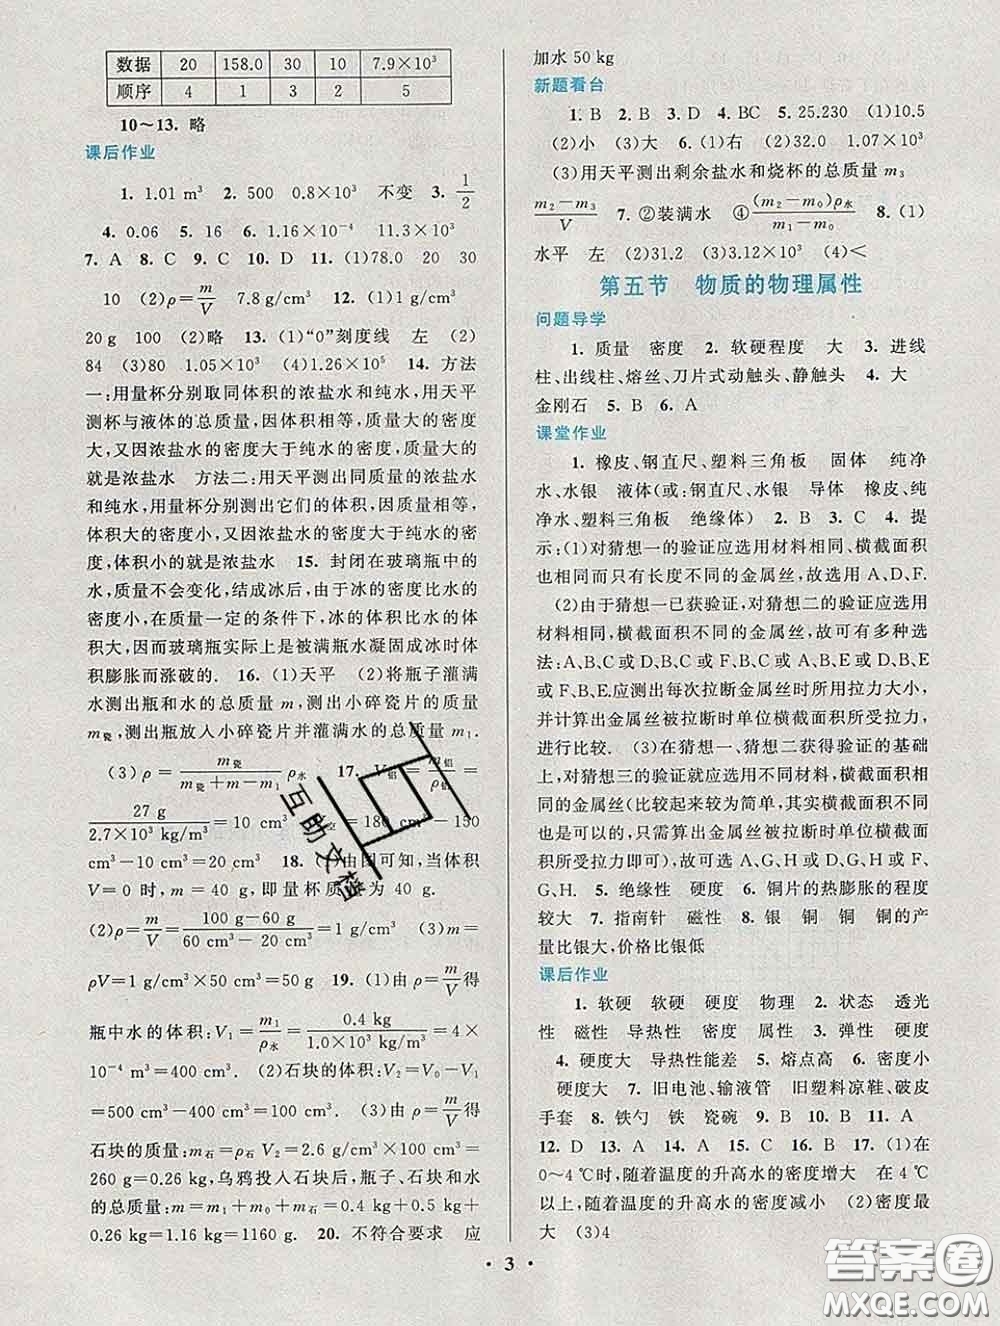 数据 20 158.0 30 10 7.9×10³
顺序 4 1 3 2 5
10～13. 略
课后作业
1. 1.01 m³ 2. 500 0.8×10³ 不变 3. 1/2
4. 0.06 5. 16 6. 1.16×10⁻⁴ 11.3×10³
7. A 8. C 9. C 10. D 11. (1)78.0 20 30
10 (2)ρ=m/V 7.8 g/cm³ 12. (1)1 g/cm³
20 g 100 (2)略 13. (1)“0”刻度线 左 (2)
84 (3)80 1.05×10³ (4)1.26×10⁵ 14. 方法
一:用量杯分别取同体积的浓盐水和纯水,用天平
测杯与液体的总质量,因体积相等,质量大的密度
大,又因浓盐水的密度大于纯水的密度,质量大的
就是浓盐水 方法二:用天平测出同质量的浓盐水
和纯水,用量杯分别测出它们的体积,因质量相等,
体积大的密度小,又因浓盐水的密度大于纯水的密
度,体积小的就是浓盐水 15. 封闭在玻璃瓶中的
水,质量不会变化,结成冰后,由于冰的密度比水的
密度小,在质量一定的条件下,冰的体积比水的体
积大,因而玻璃瓶实际上是被满瓶水凝固成冰时体
积膨胀而涨破的. 16. (1)天平 (2)将瓶子灌满
水测出瓶和水的总质量 m,测出小碎瓷片的质量
m瓷,测出瓶放入小碎瓷片并灌满水的总质量 m₁.
(3)ρ=m瓷/(m瓷+m−m₁) ρ水 17. V铝=m铝/ρ铝=
27 g/(2.7×10³ kg/m³)=10 cm³ 180 cm³−150
cm³−10 cm³=20 cm³ 18. 由图可知,当体积
V=0 时,m=40 g,即量杯质量为 40 g.
(2)ρ=m/V=(100 g−60 g)/(60 cm³−20 cm³)=1 g/cm³ (3)m=
ρV=1 g/cm³×50 cm³=50 g 19. (1)由 ρ=m/V 得
瓶中水的体积:V₁=m₁/ρ水=0.4 kg/(1.0×10³ kg/m³)=4×
10⁻⁴ m³=400 cm³. (2)石块的体积:V₂=V₀−V₁
=500 cm³−400 cm³=100 cm³. (3)由 ρ=m/V 得
石块的质量:m石=ρ石 V₂=2.6 g/cm³×100 cm³=
260 g=0.26 kg,乌鸦投入石块后,瓶子、石块和水
的总质量:m=m₁+m₀+m石=0.4 kg+0.5 kg+
0.26 kg=1.16 kg=1160 g. 20. 不符合要求 应
加水 50 kg
新题看台
1. B 2. B 3. D 4. BC 5. 25.230 (1)10.5
(2)小 (3)大 6. (1)右 (2)32.0 1.07×10³
(3)用天平测出剩余盐水和烧杯的总质量 m₃
(m₂−m₃)/V 7. ②装满水 ④(m₂−m₀)ρ水/(m₁−m₀) 8. (1)
水平 左 (2)31.2 (3)3.12×10³ (4)<
第五节 物质的物理属性
问题导学
1. 质量 密度 2. 软硬程度 大 3. 进线
柱、出线柱、熔丝、刀片式动触头、静触头 4. 大
金刚石 5. B 6. A
课堂作业
1. 橡皮、钢直尺、塑料三角板 固体 纯净
水、水银 液体(或:钢直尺、水银 导体 橡皮、纯
净水、塑料三角板 绝缘体) 2. B 3. C 4. 提
示:(1)对猜想一的验证应选用材料相同、横截面积
相同而只有长度不同的金属丝,故选用 A、D、F.
(2)由于猜想一已获验证,对猜想二的验证应选用
材料相同,横截面积不同的金属丝,故可有多种选
法:A、B、C 或 D、B、C 或 F、B、C 或 A、B、E 或 D、B、E
或 F、B、E.应测出每次拉断金属丝时所用拉力大小,
并计算出金属丝被拉断时单位横截面积所受拉力,
进行比较. (3)在猜想一、猜想二获得验证的基础
上,对猜想三的验证就应选用不同材料,横截面积相
同的金属丝(比较起来较为简单,其实横截面积不同
也是可以的,只需算出金属丝被拉断时单位横截面
积所受拉力即可),故可选 A、G、H 或 D、G、H 或 F、
G、H. 5. 绝缘性 硬度 6. 铜片的热膨胀的程度
较大 7. 指南针 磁性 8. 银 铜 铜 铜的产
量比银大,价格比银低
课后作业
1. 软硬 软硬 硬度 物理 2. 状态 透光
性 磁性 导热性 密度 属性 3. 弹性 硬度
4. 硬度大 导热性能差 5. 熔点高 6. 密度小
硬度大 7. 旧电池、输液管 旧塑料凉鞋、破皮
手套 8. 铁勺 铁 瓷碗 9. B 10. B 11. A
12. D 13. A 14. A 15. C 16. B 17. (1)在
0～4 ℃时,随着温度的升高水的密度增大 在 4 ℃
以上,随着温度的升高水的密度减小 (2)密度最
大 (3)4
· 3 ·
互助文档
答案圈
MXQE.COM